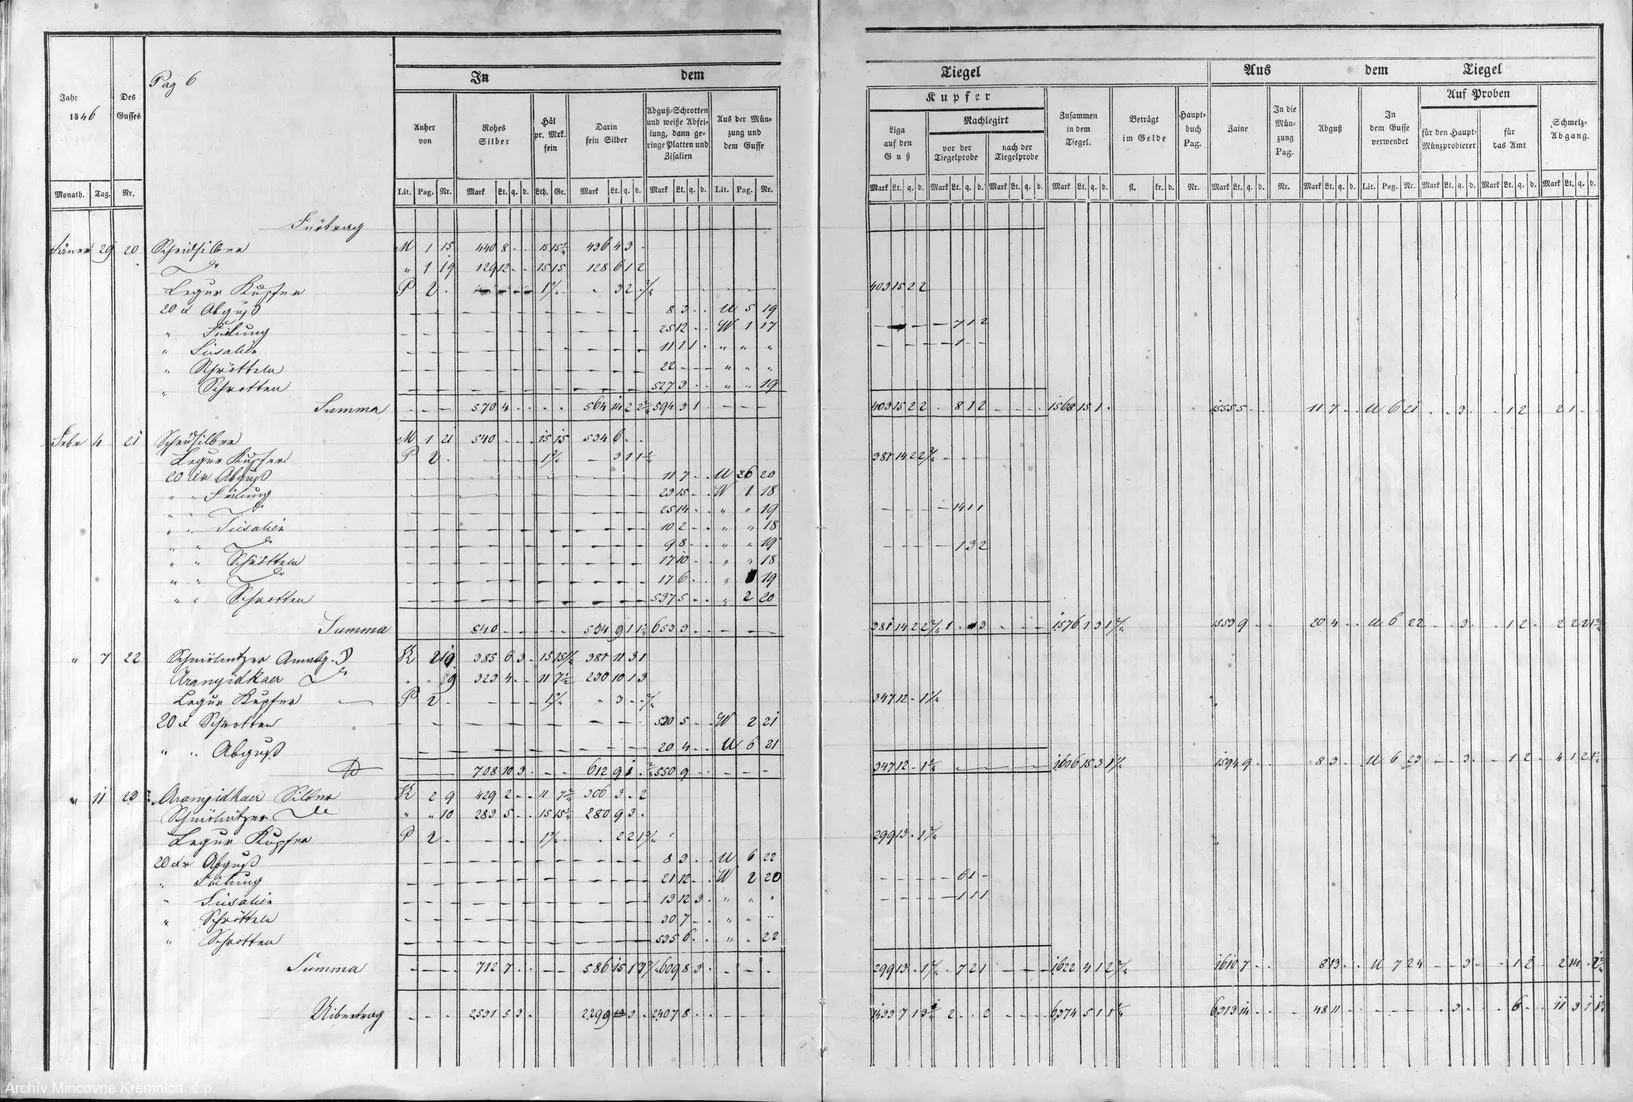 Pag 6
In dem Tiegel
Aus dem Tiegel
Jahr 1846
Des Gusses
Anher von
Rohes Silber
Hält pr. Mrk. fein
Darin fein Silber
Abguß-Schrotten und weiße Abfeilung, dann geringe Platten und Zisalien
Aus der Münzung und dem Gusse
Kupfer
Nachlegirt
Liga auf den Guß
vor der Tiegelprobe
nach der Tiegelprobe
Zusammen in dem Tiegel.
Beträgt im Gelde
Hauptbuch Pag.
Zaine
In die Münzung Pag.
Abguß
In dem Gusse verwendet
Auf Proben
für den Haupt-Münzprobierer
für das Amt
Schmelz-Abgang.
Monath. Tag. Nr.
Lit. Pag. Nr. Mark Lt. q. d. Lth. Gr. Mark Lt. q. d. Mark Lt. q. d. Lit. Pag. Nr.
Mark Lt. q. d. Mark Lt. q. d. Mark Lt. q. d. Mark Lt. q. d. fl. kr. d. Nr. Mark Lt. q. d. Nr. Mark Lt. q. d. Lit. Pag. Nr. Mark Lt. q. d. Mark Lt. q. d. Mark Lt. q. d.
Fürtrag
Jäner 29 20 Scheidsilber M 1 15 440 8 436 4 3
do " 1 19 129 12 15 15 128 6 1 2
Legur Kupfer P 2 403 15 2 2
20 r Abguß 8 3 U 5 19
" Feilung 25 12 W 1 17 7 1 2
" Zisalien 11 11 " " "
" Schrötteln 22 " " "
" Schrotten 527 3 " " 19
Summa 570 4 564 14 2 594 3 1 403 15 2 2 8 1 2 1568 15 1 1555 5 11 7 U 6 21 3 1 2 2 1
Febr 4 21 Scheidsilber M 1 21 540 15 15 534 6
Legur Kupfer P 2 381 14 2
20 er Abguß 11 7 U 20
" " Feilung 23 15 W 1 18
" " do 25 14 " " 19 14 1 1
" " Zisalien 10 2 " " 18
" " do 9 8 " " 19 1 3 2
" " Schrötteln 17 10 " " 18
" " do 17 6 " 19
" " Schrotten 537 5 " 2 20
Summa 540 534 9 1 653 3 381 14 2 1 3 1576 1 3 1 1553 9 20 4 U 6 22 3 1 2
" 7 22 Schmölnitzer Amalg. K 2 385 6 3 381 11 3 1
Aranyidkaer do 9 323 4 230 10 1 3
Legur Kupfer P 2 347 12
20 r Schrotten 530 5 W 2 21
" " Abguß 20 4 U 6 21
708 10 3 612 9 1 550 9 347 12 1606 15 3 1 1594 9 8 3 U 6 23 3 1 2
" 11 23 Aranyidkaer Silber K 2 9 429 2 306 3 2
Schmölnitzer do " " 10 283 5 280 9 3
Legur Kupfer P 2 299 13
20 er Abguß 8 3 U 6 22
" Feilung 21 12 W 2 20 6 1
" Zisalien 13 12 3 " " " 1 1 1
" Schrötteln 30 7 " "
" Schrotten 535 6 " " 22
Summa 712 7 586 15 1 609 8 3 299 13 7 2 1 1622 4 1 2 1610 7 8 13 U 7 24 3 1 2
Uibertrag 2531 5 3 2299 3 2407 8 1433 7 1 2 2 6374 5 1 1 6313 14 48 11 3 6 11 3 1
Archív Mincovne Kremnica, š.p.